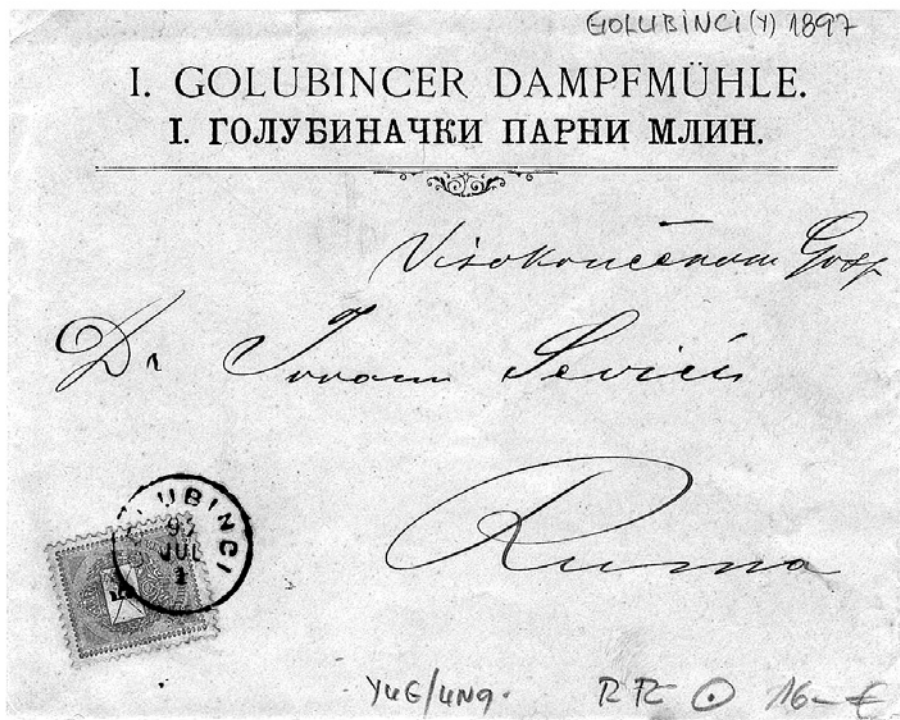 GOLUBINCI (Y) 1897
I. GOLUBINCER DAMPFMÜHLE.
I. ГОЛУБИНАЧКИ ПАРНИ МЛИН.
Gosp
Dr Jovanu
Ruma
UBINCI
JUL
1
YUG/UNG.
16-€